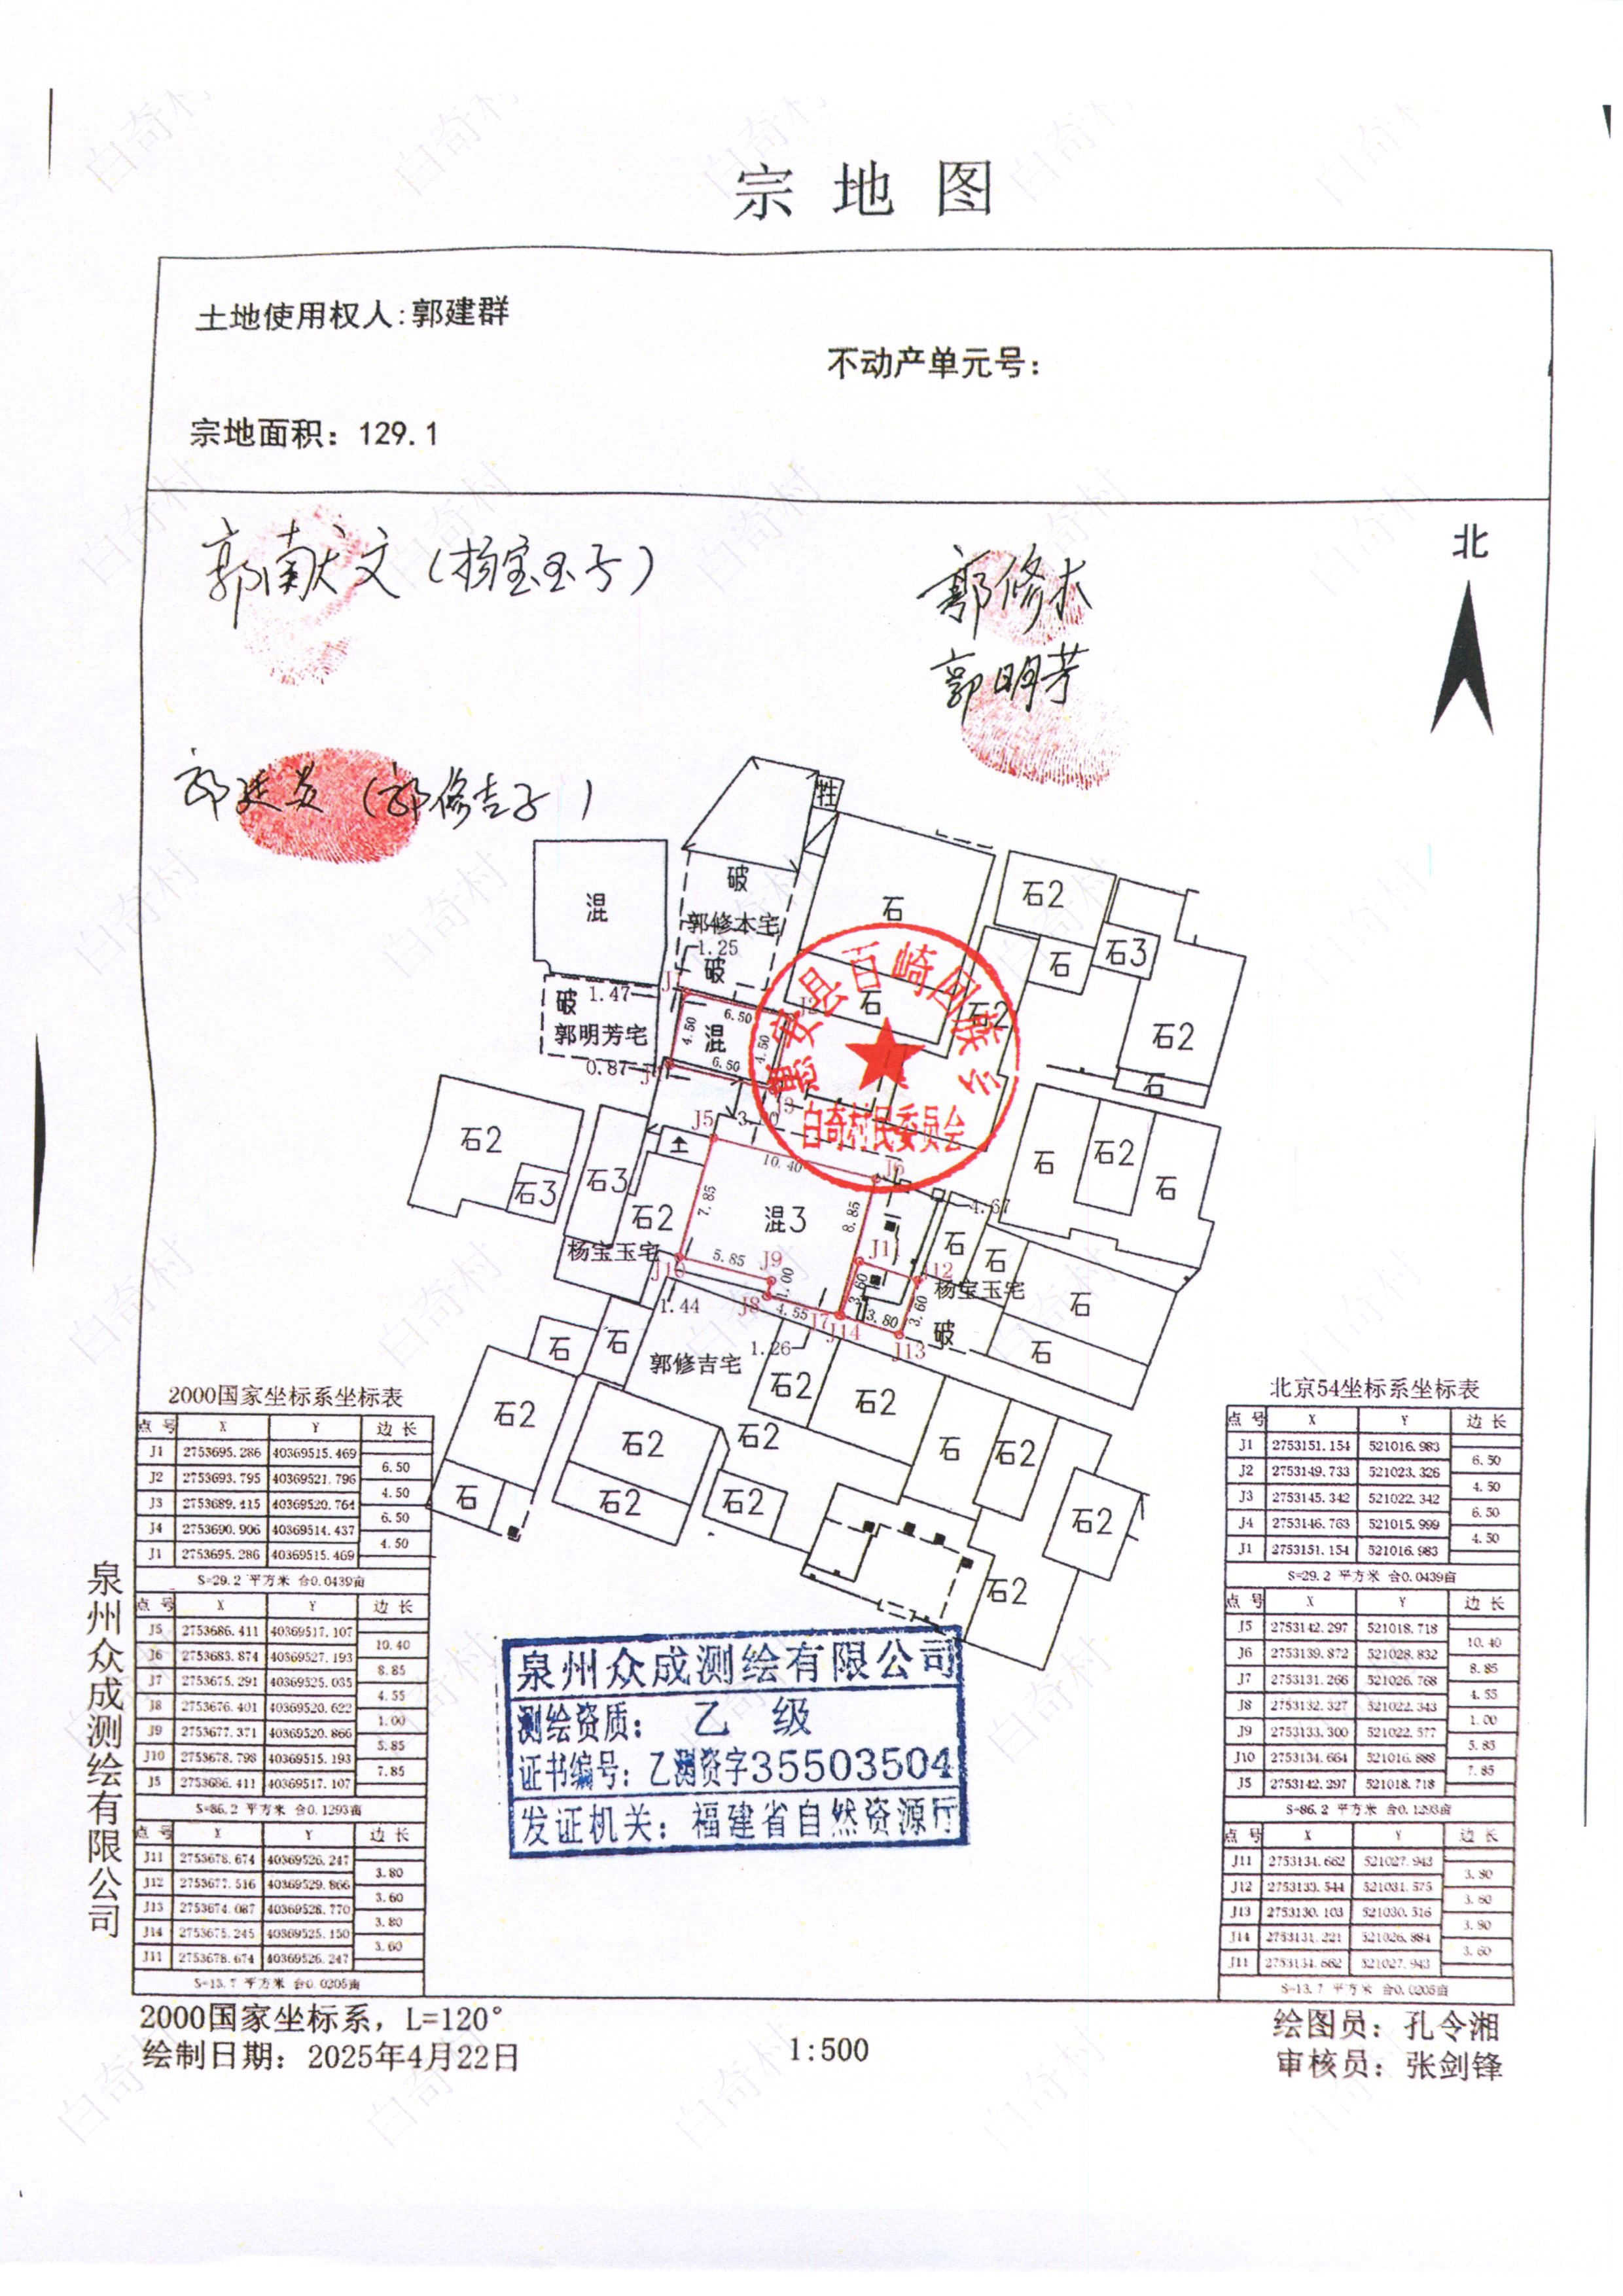 宗地图
土地使用权人:郭建群
不动产单元号:
宗地面积: 129.1
郭献文(杨宝玉子)
郭修本
郭明芳
(郭修吉子)
北
牲
破
郭修本宅
1.25
破
混
石
石2
石
石3
石2
石
石2
石
破
1.47
郭明芳宅
0.87
J1
J2
6.50
4.50
混
4.50
6.50
J4
J3
惠安县百崎回族乡
白奇村民委员会
石2
石3
石3
石2
杨宝玉宅
J5
J6
10.40
7.85
混3
8.85
4.67
石
石2
石
石
石
石
石
5.85
J9
J10
J8
1.00
4.55
J7
J14
J11
J12
3.60
3.80
3.60
J13
杨宝玉宅
破
1.44
1.26
郭修吉宅
石
石
石2
石2
石2
石2
石2
石
石2
石2
石2
石
石2
石2
2000国家坐标系坐标表
点号 X Y 边长
J1 2753695.286 40369515.469
6.50
J2 2753693.795 40369521.796
4.50
J3 2753689.415 40369520.764
6.50
J4 2753690.906 40369514.437
4.50
J1 2753695.286 40369515.469
S=29.2 平方米 合0.0439亩
点号 X Y 边长
J5 2753686.411 40369517.107
10.40
J6 2753683.874 40369527.193
8.85
J7 2753675.291 40369525.035
4.55
J8 2753676.401 40369520.622
1.00
J9 2753677.371 40369520.866
5.85
J10 2753678.798 40369515.193
7.85
J5 2753686.411 40369517.107
S=86.2 平方米 合0.1293亩
点号 X Y 边长
J11 2753678.674 40369526.247
3.80
J12 2753677.516 40369529.866
3.60
J13 2753674.087 40369528.770
3.80
J14 2753675.245 40369525.150
3.60
J11 2753678.674 40369526.247
S=13.7 平方米 合0.0205亩
北京54坐标系坐标表
点号 X Y 边长
J1 2753151.154 521016.983
6.50
J2 2753149.733 521023.326
4.50
J3 2753145.342 521022.342
6.50
J4 2753146.763 521015.999
4.50
J1 2753151.154 521016.983
S=29.2 平方米 合0.0439亩
点号 X Y 边长
J5 2753142.297 521018.718
10.40
J6 2753139.872 521028.832
8.85
J7 2753131.266 521026.768
4.55
J8 2753132.327 521022.343
1.00
J9 2753133.300 521022.577
5.85
J10 2753134.664 521016.888
7.85
J5 2753142.297 521018.718
S=86.2 平方米 合0.1293亩
点号 X Y 边长
J11 2753134.662 521027.943
3.80
J12 2753133.544 521031.575
3.60
J13 2753130.103 521030.516
3.80
J14 2753131.221 521026.884
3.60
J11 2753134.662 521027.943
S=13.7 平方米 合0.0205亩
泉州众成测绘有限公司
测绘资质: 乙 级
证书编号: 乙测资字35503504
发证机关: 福建省自然资源厅
泉州众成测绘有限公司
2000国家坐标系, L=120°
绘制日期: 2025年4月22日
1:500
绘图员: 孔令湘
审核员: 张剑锋
白奇村